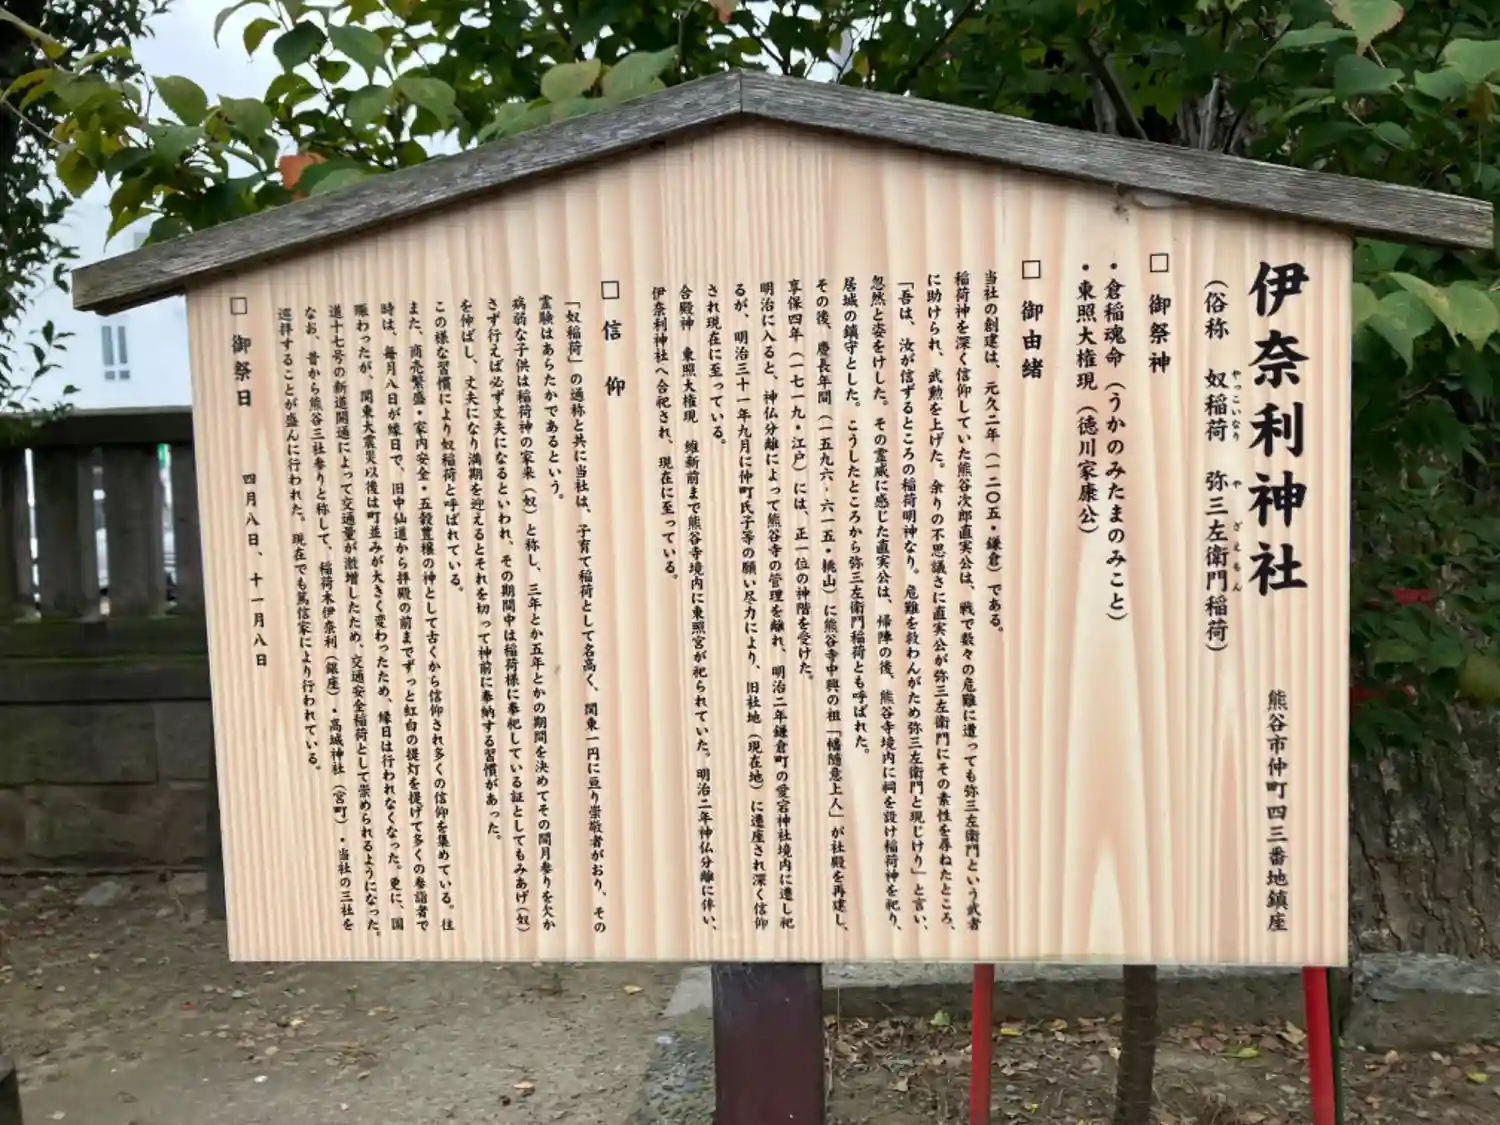 伊奈利神社 熊谷市仲町四三番地鎮座
（俗称 奴稲荷 弥三左衛門稲荷）
やっこいなり や ざえもん
□ 御祭神
・倉稲魂命（うかのみたまのみこと）
・東照大権現（徳川家康公）
□ 御由緒
当社の創建は、元久二年（一二〇五・鎌倉）である。
稲荷神を深く信仰していた熊谷次郎直実公は、戦で数々の危難に遭っても弥三左衛門という武者
に助けられ、武勲を上げた。余りの不思議さに直実公が弥三左衛門にその素性を尋ねたところ、
「吾は、汝が信ずるところの稲荷明神なり。危難を救わんがため弥三左衛門と現じけり」と言い、
忽然と姿をけした。その霊威に感じた直実公は、帰陣の後、熊谷寺境内に祠を設け稲荷神を祀り、
居城の鎮守とした。こうしたところから弥三左衛門稲荷とも呼ばれた。
その後、慶長年間（一五九六‐六一五・桃山）に熊谷寺中興の祖「幡随意上人」が社殿を再建し、
享保四年（一七一九・江戸）には、正一位の神階を受けた。
明治に入ると、神仏分離によって熊谷寺の管理を離れ、明治二年鎌倉町の愛宕神社境内に遷し祀
るが、明治三十一年九月に仲町氏子等の願い尽力により、旧社地（現在地）に遷座され深く信仰
され現在に至っている。
合殿神 東照大権現 維新前まで熊谷寺境内に東照宮が祀られていた。明治二年神仏分離に伴い、
伊奈利神社へ合祀され、現在に至っている。
□ 信 仰
「奴稲荷」の通称と共に当社は、子育て稲荷として名高く、関東一円に亘り崇敬者がおり、その
霊験はあらたかであるという。
病弱な子供は稲荷神の家来（奴）と称し、三年とか五年とかの期間を決めてその間月参りを欠か
さず行えば必ず丈夫になるといわれ、その期間中は稲荷様に奉祀している証としてもみあげ（奴）
を伸ばし、丈夫になり満期を迎えるとそれを切って神前に奉納する習慣があった。
この様な習慣により奴稲荷と呼ばれている。
また、商売繁盛・家内安全・五穀豊穣の神として古くから信仰され多くの信仰を集めている。往
時は、毎月八日が縁日で、旧中仙道から拝殿の前までずっと紅白の提灯を提げて多くの参詣者で
賑わったが、関東大震災以後は町並みが大きく変わったため、縁日は行われなくなった。更に、国
道十七号の新道開通によって交通量が激増したため、交通安全稲荷として崇められるようになった。
なお、昔から熊谷三社参りと称して、稲荷木伊奈利（銀座）・高城神社（宮町）・当社の三社を
巡拝することが盛んに行われた。現在でも篤信家により行われている。
□ 御祭日 四月八日、十一月八日